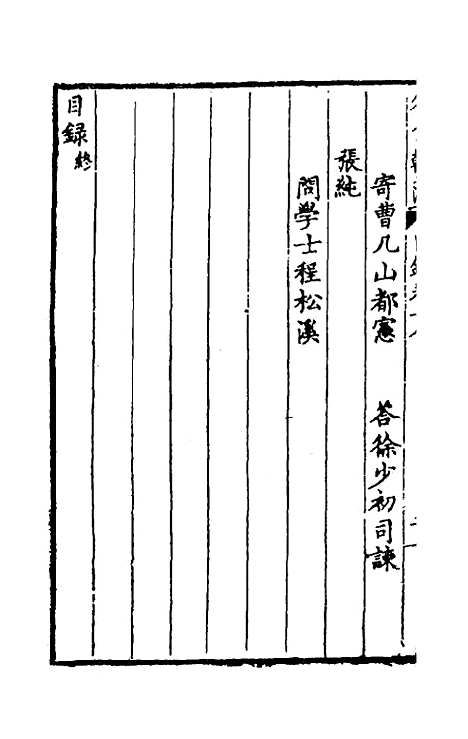 寄曹凡山都憲　答徐少初司諫
張純
問學士程松溪
目録終